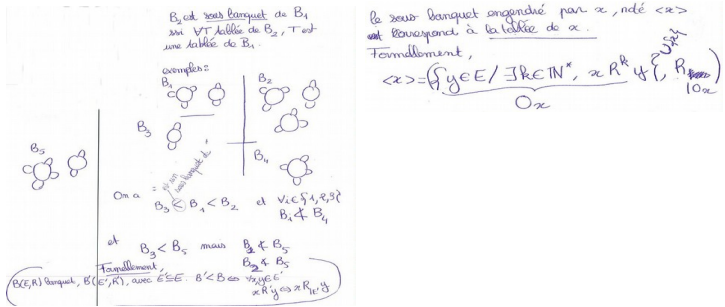 B₂ est sous banquet de B₁
ssi ∀T tablée de B₂, T est
une tablée de B₁.
exemples:
B₁
B₂
B₃
B₄
B₅
On a B₃ < B₁ < B₂ et ∀i∈{1,2,3}
Bᵢ ≮ B₄
est un sous banquet de
et B₃ < B₅ mais B₂ ≮ B₅
B₂ ≮ B₅
Formellement,
B(E,R) banquet, B'(E',R'), avec E'⊆E. B' < B ⇔ ∀x,y∈E'
xR'y ⇔ xR|E' y
le sous banquet engendré par x, noté <x>
correspond à la tablée de x.
Formellement,
<x> = ({y∈E / ∃k∈ℕ*, xRᵏy}∪{x}, R
|Ox)
Ox